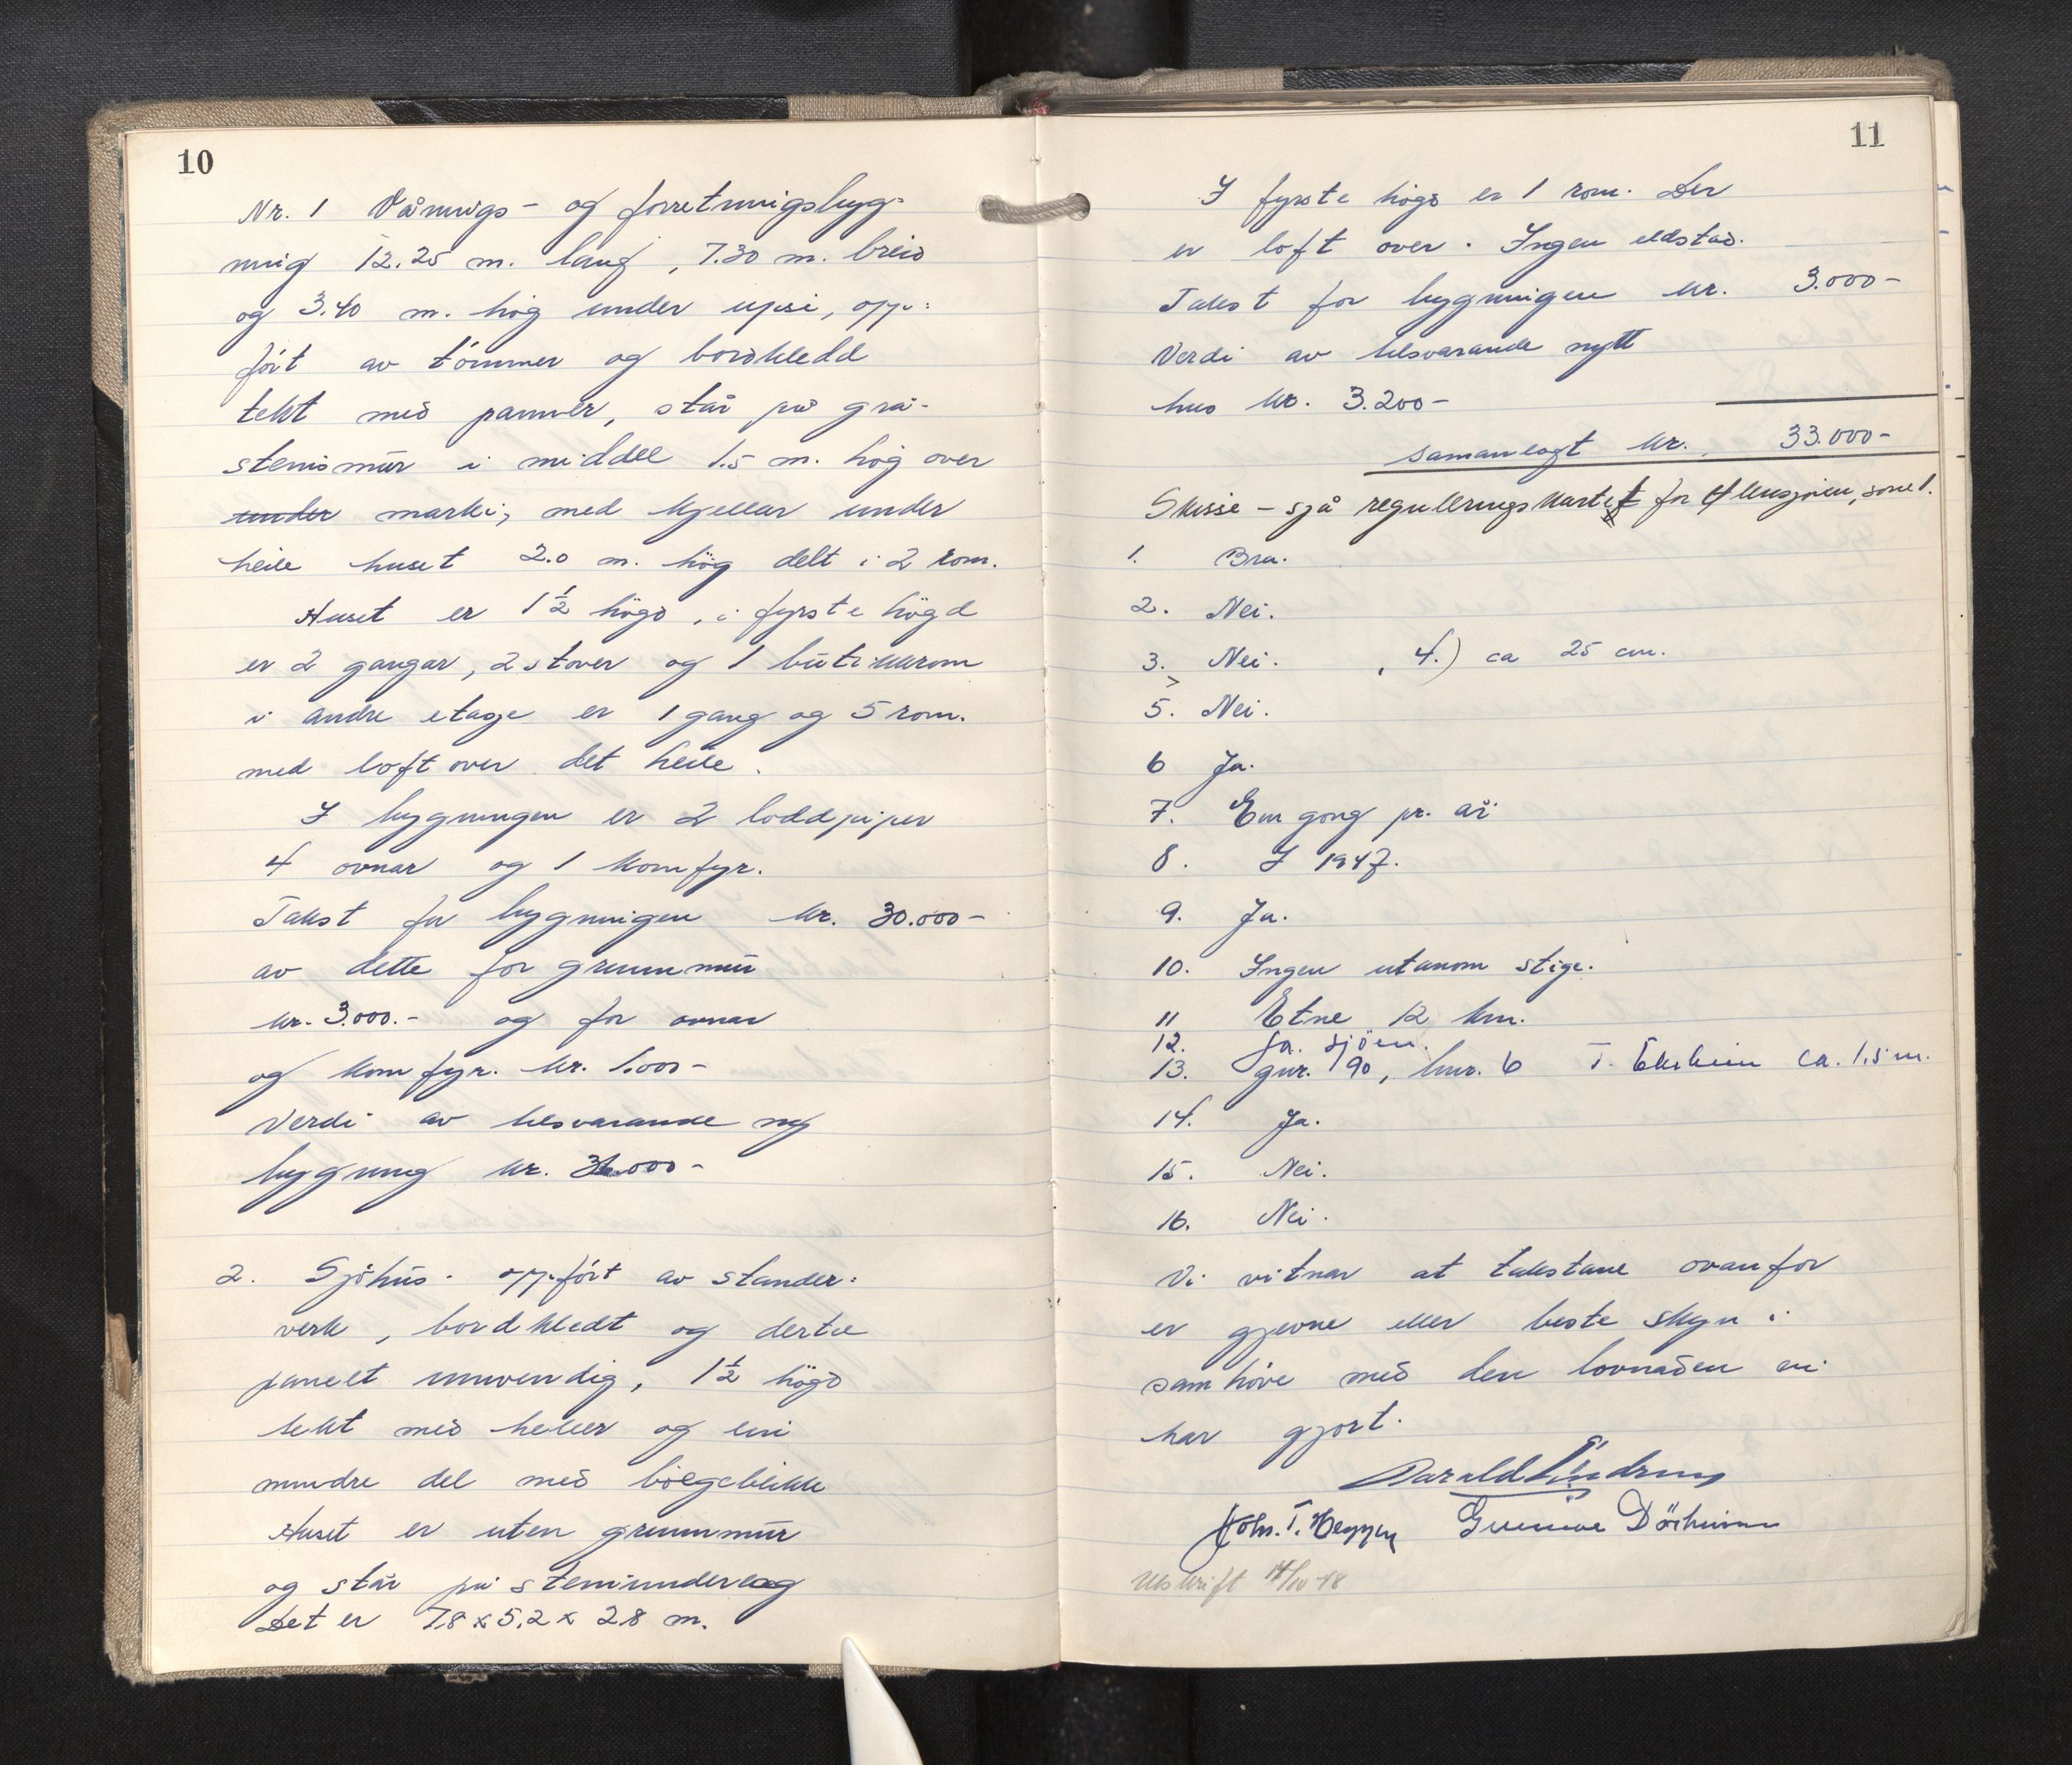 10
Nr. 1 Vånings- og forretningsbyg=
ning 12.25 m. lang, 7.30 m. breid
og 3.40 m. høg under upsi, opp=
ført av tømmer og bordkledd
tekt med panner, står på grå-
steinsmur i middel 1.5 m. høg over
under marki, med kjellar under
heile huset 2.0 m. høg delt i 2 rom.
Huset er 1 1/2 högd, i fyrste högd
er 2 gangar, 2 stover og 1 butikkrom
i andre etage er 1 gang og 5 rom.
med loft over det heile.
I bygningen er 2 loddpiper
4 ovnar og 1 komfyr.
Takst for bygningen kr. 30.000-
av dette for grunnmur
kr. 3.000.- og for ovnar
og komfyr. kr. 1.000-
Verdi av tilsvarande ny
bygning kr. 000-
2. Sjøhus. oppført av stander=
verk, bordkledt og dertil
panelt innvendig, 1 1/2 högd
tekt med heller og ein
mindre del med bølgeblikk
Huset er uten grunnmur
og står på steinunderlag
Det er 7.8 x 5.2 x 2.8 m.
11
I fyrste högd er 1 rom. Der
er loft over. Ingen eldstad.
Takst for bygningen kr. 3.000-
Verdi av tilsvarande nytt
hus kr. 3.200-
samanlagt kr. 33.000-
Skisse - sjå reguleringskartet for Ølensjøen, sone 1.
1. Bra.
2. Nei.
3. Nei. , 4.) ca 25 cm.
5. Nei.
6 Ja.
7. Ein gong pr. år
8. I 1947.
9. Ja.
10. Ingen utanom stige.
11 Etne 12 km.
12. Ja. sjøen.
13. gnr. 90, bnr. 6 T. Ekheim ca. 1,5 m.
14. Ja.
15. Nei.
16. Nei.
Vi vitnar at takstane ovanfor
er gjevne etter beste skyn i
samhøve med den lovnaden vi
har gjort.
Harald
Johs. T. Heggen Gunnar
Utskrift 14/10-48